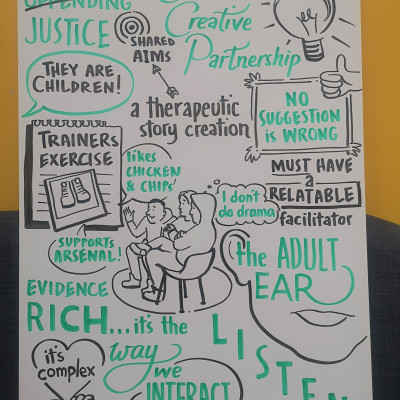 OFFENDING
JUSTICE
SHARED
AIMS
Creative
Partnership
THEY ARE
CHILDREN!
a therapeutic
story creation
NO
SUGGESTION
is WRONG
TRAINERS
EXERCISE
likes
CHICKEN
& CHIPS'
MUST HAVE
a
RELATABLE
facilitator
I don't
do drama
SUPPORTS
ARSENAL!
the ADULT
EAR
EVIDENCE
RICH...it's the
way
we
INTERACT
LISTEN
it's
complex